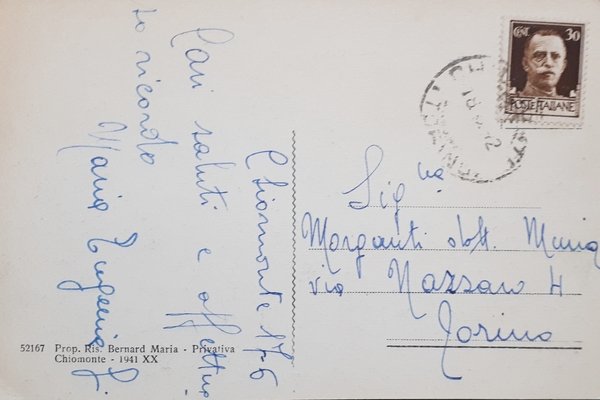 Chiomonte 17-6
Cari saluti e affettuo
so ricordo
Maria Eugenia
CENT. 30
POSTE ITALIANE
Sig.na
Morganti dott. Maria
via Nazzaro 4
Torino
52167 Prop. Ris. Bernard Maria - Privativa
Chiomonte - 1941 XX